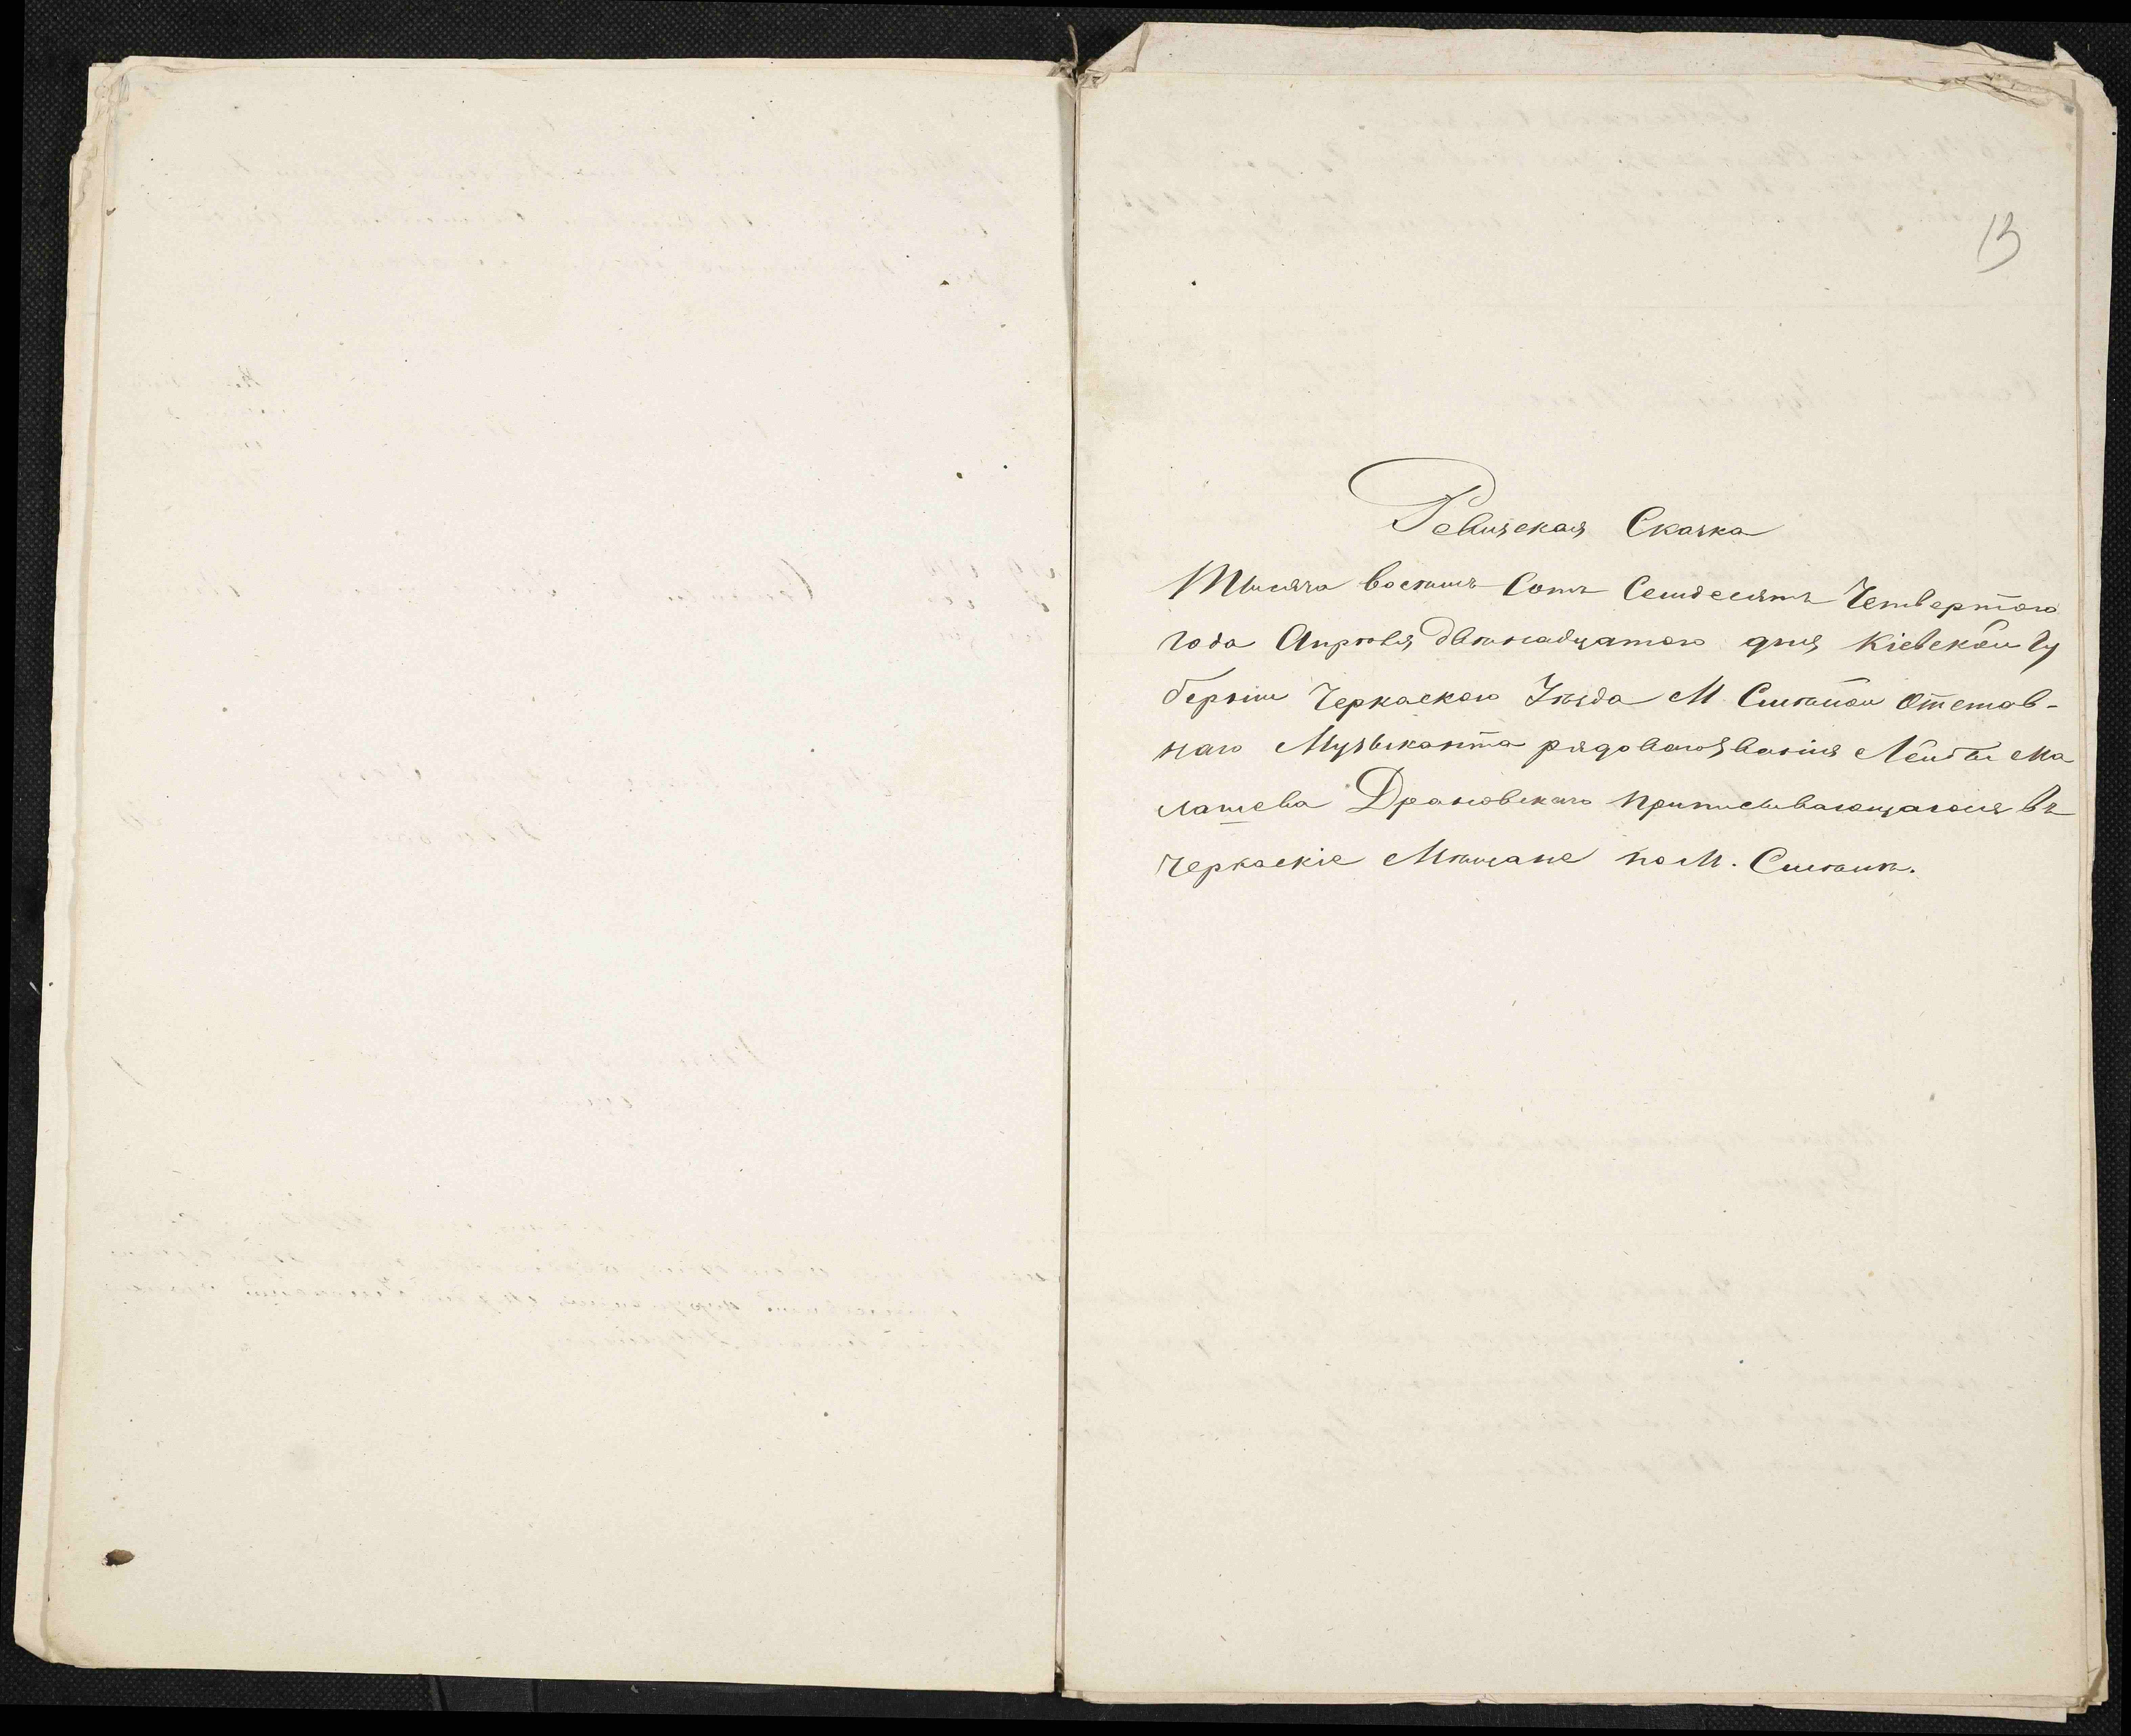 13
Ревизская Сказка
Тысяча восемь Сотъ Семдесятъ Четвертого
года Апрѣля двѣнадцатого дня Кіевской Гу
берніи Черкаского Уѣзда М Смѣлой Отстав-
наго Музыканта рядоваго званія Лейбы Ма
лашева Драновскаго приписывающагося въ
Черкаскіе Мѣщане по М. Смѣлѣ.